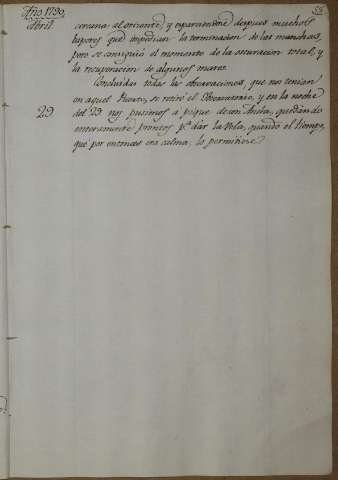 Año 1790,
58
Abril.
cercana al oriente, y esparciendose despues muchos
bapores que impedian la terminacion de las manchas,
pero se consiguió el momento de la oscuracion total, y
la recuperacion de algunos mares.
Concluidas todas las observaciones, que nos tenian
en aquel Puerto, se retiró el Observatorio, y en la noche
29 del 29 nos pusimos a pique de un Ancla, quedando
enteramente prontos pª. dar la Vela, quando el tiempo,
que por entonces era calma, lo permitiese.